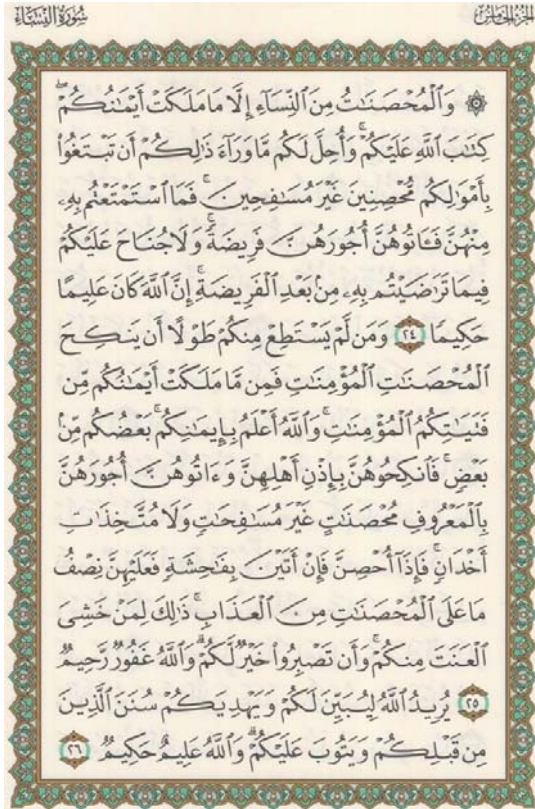 سُورَةُ النِّسَاءِ
الجُزْءُ الخَامِسُ
۞ وَالْمُحْصَنَاتُ مِنَ النِّسَاءِ إِلَّا مَا مَلَكَتْ أَيْمَانُكُمْ ۖ
كِتَابَ اللَّهِ عَلَيْكُمْ ۚ وَأُحِلَّ لَكُم مَّا وَرَاءَ ذَٰلِكُمْ أَن تَبْتَغُوا
بِأَمْوَالِكُم مُّحْصِنِينَ غَيْرَ مُسَافِحِينَ ۚ فَمَا اسْتَمْتَعْتُم بِهِ
مِنْهُنَّ فَـَٔاتُوهُنَّ أُجُورَهُنَّ فَرِيضَةً ۚ وَلَا جُنَاحَ عَلَيْكُمْ
فِيمَا تَرَاضَيْتُم بِهِ مِن بَعْدِ الْفَرِيضَةِ ۚ إِنَّ اللَّهَ كَانَ عَلِيمًا
حَكِيمًا ٢٤ وَمَن لَّمْ يَسْتَطِعْ مِنكُمْ طَوْلًا أَن يَنكِحَ
الْمُحْصَنَاتِ الْمُؤْمِنَاتِ فَمِن مَّا مَلَكَتْ أَيْمَانُكُم مِّن
فَتَيَاتِكُمُ الْمُؤْمِنَاتِ ۚ وَاللَّهُ أَعْلَمُ بِإِيمَانِكُم ۚ بَعْضُكُم مِّن
بَعْضٍ ۚ فَانكِحُوهُنَّ بِإِذْنِ أَهْلِهِنَّ وَءَاتُوهُنَّ أُجُورَهُنَّ
بِالْمَعْرُوفِ مُحْصَنَاتٍ غَيْرَ مُسَافِحَاتٍ وَلَا مُتَّخِذَاتِ
أَخْدَانٍ ۚ فَإِذَا أُحْصِنَّ فَإِنْ أَتَيْنَ بِفَاحِشَةٍ فَعَلَيْهِنَّ نِصْفُ
مَا عَلَى الْمُحْصَنَاتِ مِنَ الْعَذَابِ ۚ ذَٰلِكَ لِمَنْ خَشِيَ
الْعَنَتَ مِنكُمْ ۚ وَأَن تَصْبِرُوا خَيْرٌ لَّكُمْ ۗ وَاللَّهُ غَفُورٌ رَّحِيمٌ
٢٥ يُرِيدُ اللَّهُ لِيُبَيِّنَ لَكُمْ وَيَهْدِيَكُمْ سُنَنَ الَّذِينَ
مِن قَبْلِكُمْ وَيَتُوبَ عَلَيْكُمْ ۗ وَاللَّهُ عَلِيمٌ حَكِيمٌ ٢٦